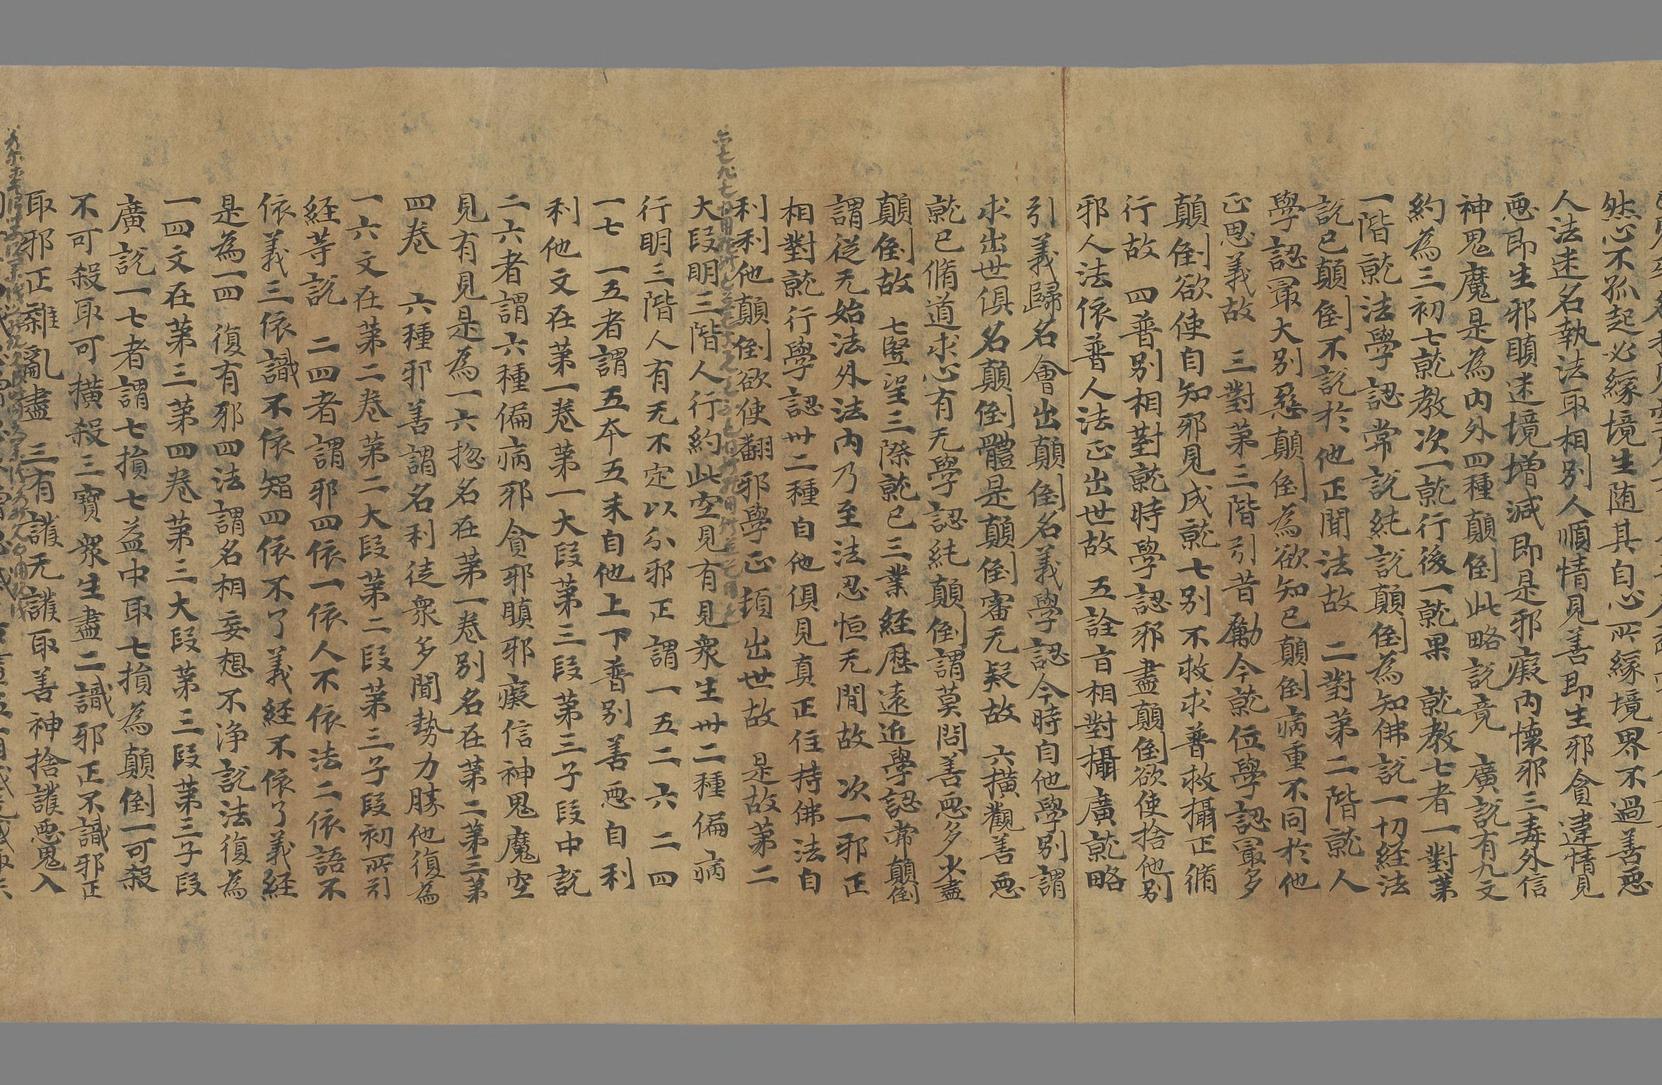 然心不孤起必緣境生随其自心所緣境界不過善惡
人法迷名執法取相別人順情見善即生邪貪違情見
惡即生邪瞋迷境增減即是邪癡內懷邪三毒外信
神鬼魔是為內外四種顛倒此略說竟　廣說有九文
約為三初七就教次一就行後一就果　就教七者一對第
一階就法學認常說純說顛倒為知佛說一切經法
說已顛倒不說於他正聞法故　二對第二階就人
學認最大別惡顛倒為欲知已顛倒病重不同於他
正思義故　三對第三階引昔勵今就位學認最多
顛倒欲使自知邪見成就七別不救求普救攝正脩
行故　四普別相對就時學認邪盡顛倒欲使捨他別
邪人法依普人法正出世故　五詮旨相對攝廣就略
引義歸名會出顛倒名義學認今時自他學別謂
求出世俱名顛倒體是顛倒審无疑故　六橫觀善惡
就已脩道求心有无學認純顛倒謂莫問善惡多少盡
顛倒故　七竪望三際就已三業經歷遠近學認常顛倒
謂從无始法外法內乃至法忍恒无間故　次一邪正
相對就行學認卅二種自他俱見真正住持佛法自
利利他顛倒欲使翻邪學正頭出世故　是故第二
大段明三階人行約此空見有見衆生卅二種偏病
行明三階人有无不定以分邪正謂一五二六二四
一七　一五者謂五本五末自他上下普別善惡自利
利他文在第一卷第一大段第三段第三子段中說
二六者謂六種偏病邪貪邪瞋邪癡信神鬼魔空
見有見是為一六揔名在第一卷別名在第二第三第
四卷　六種邪善謂名利徒衆多聞勢力勝他復為
一六文在第二卷第二大段第二段第三子段初所引
經等說　二四者謂邪四依一依人不依法二依語不
依義三依識不依智四依不了義經不依了義經
是為一四　復有邪四法謂名相妄想不淨說法復為
一四文在第三第四卷第三大段第三段第三子段
廣說一七者謂七損七益中取七損為顛倒一可殺
不可殺取可橫殺三寶衆生盡二識邪正不識邪正
取邪正雜亂盡　三有護无護取善神捨護惡鬼入